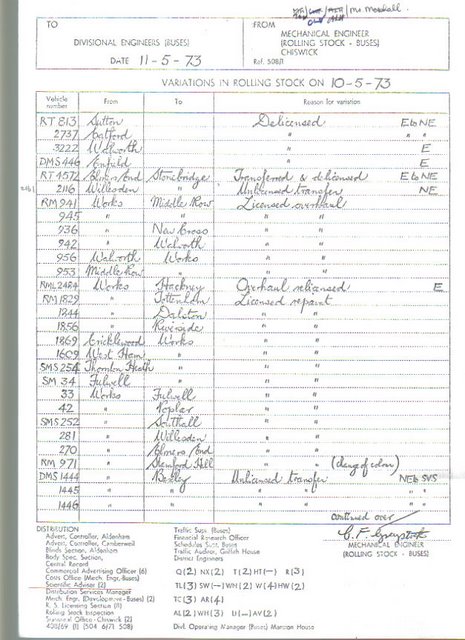 Mr Marshall.
TO
FROM
DIVISIONAL ENGINEERS (BUSES)
MECHANICAL ENGINEER
(ROLLING STOCK - BUSES)
CHISWICK
DATE 11-5-73
Ref. 508/1
VARIATIONS IN ROLLING STOCK ON 10-5-73
Vehicle number From To Reason for variation
RT 813 Sutton Delicensed E to NE
2737 Catford " " "
3222 Walworth " E
DMS 446 Enfield " E
RT 4572 Elmers End Stonebridge Transferred & delicensed E to NE
2116 Willesden " Unlicensed transfer NE
RM 941 Works Middle Row Licensed overhaul
945 " " " "
936 " New Cross " "
942 " Walworth " "
956 Walworth Works " "
953 Middle Row " " "
RML 2484 Works Hackney Overhaul relicensed E
RM 1829 " Tottenham Licensed repaint
1244 " Dalston " "
1856 " Riverside " "
1869 Cricklewood Works " "
1609 West Ham " " "
SMS 254 Thornton Heath " " "
SM 34 Fulwell " " "
33 Works Fulwell " "
42 " Poplar " "
SMS 252 " Southall " "
281 " Willesden " "
270 " Elmers End " "
RM 971 " Stamford Hill " " (change of colour)
DMS 1444 " Bexley Unlicensed transfer NE to SVS
1445 " " " " " "
1446 " " " " " "
continued over
MECHANICAL ENGINEER
(ROLLING STOCK - BUSES)
DISTRIBUTION
Advert. Controller, Aldenham
Advert. Controller, Camberwell
Blinds Section, Aldenham
Body Spec. Section,
Central Record
Commercial Advertising Officer (6)
Costs Office (Mech. Engr.-Buses)
Scientific Adviser (2)
Distribution Services Manager
Mech. Engr. (Development - Buses) (2)
R. S. Licensing Section (11)
Rolling Stock Inspection
Statistical Office - Chiswick (2)
Traffic Supt. (Buses)
Financial Research Officer
Schedules Supt. Buses
Traffic Auditor, Griffith House
District Engineers
Q(2) NX(2) T(2) HT(-) R(3)
TL(3) SW(-) WH(2) W(4) HW(2)
TC(3) AR(4)
AL(2) WH(3) U(-) AV(2)
Divl. Operating Manager (Buses) Mansion House